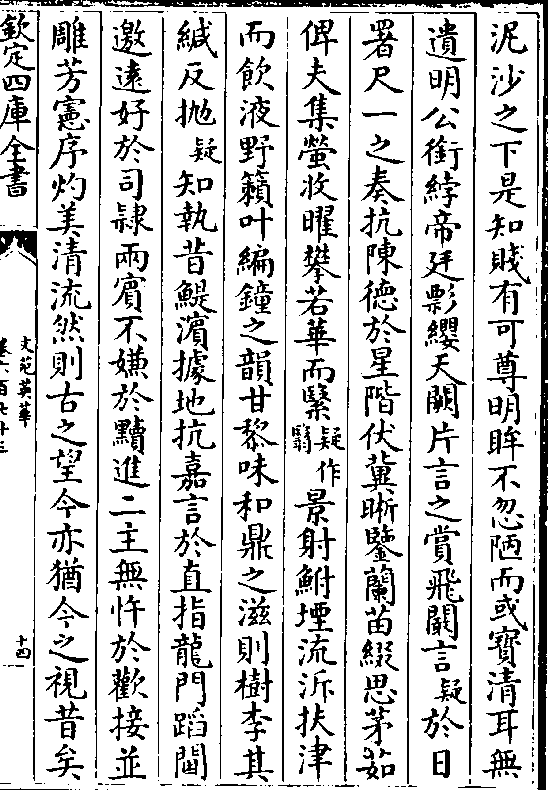 泥沙之下是知賤有可尊明眸不忽陋而或寳清耳無
遺明公銜綍帝廷影纓天闕片言之賞飛闢言疑於日
署尺一之奏抗陳德於星階伏冀晰鑒蘭苗綴思茅茹
俾夫集螢收曜攀若華而緊疑作翳景射鮒堙流泝扶津
而飲液野籟叶編鐘之韻甘黎味和鼎之滋則樹李其
緘反抛疑知執昔鯷濵據地抗嘉言於直指龍門蹈閫
邀逺好於司隷兩賔不嫌於黷進二主無忤於歡接並
雕芳憲序灼美清流然則古之望今亦猶今之視昔矣
欽定四庫全書
文苑英華
卷六百七十三
十四